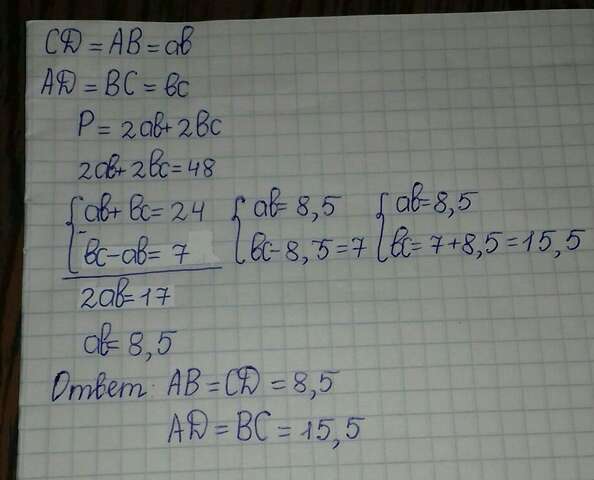 CD = AB = ab
AD = BC = bc
P = 2ab + 2bc
2ab + 2bc = 48
{ab + bc = 24 {ab = 8,5 {ab = 8,5
- {bc - ab = 7 {bc - 8,5 = 7 {bc = 7 + 8,5 = 15,5
2ab = 17
ab = 8,5
Ответ: AB = CD = 8,5
AD = BC = 15,5